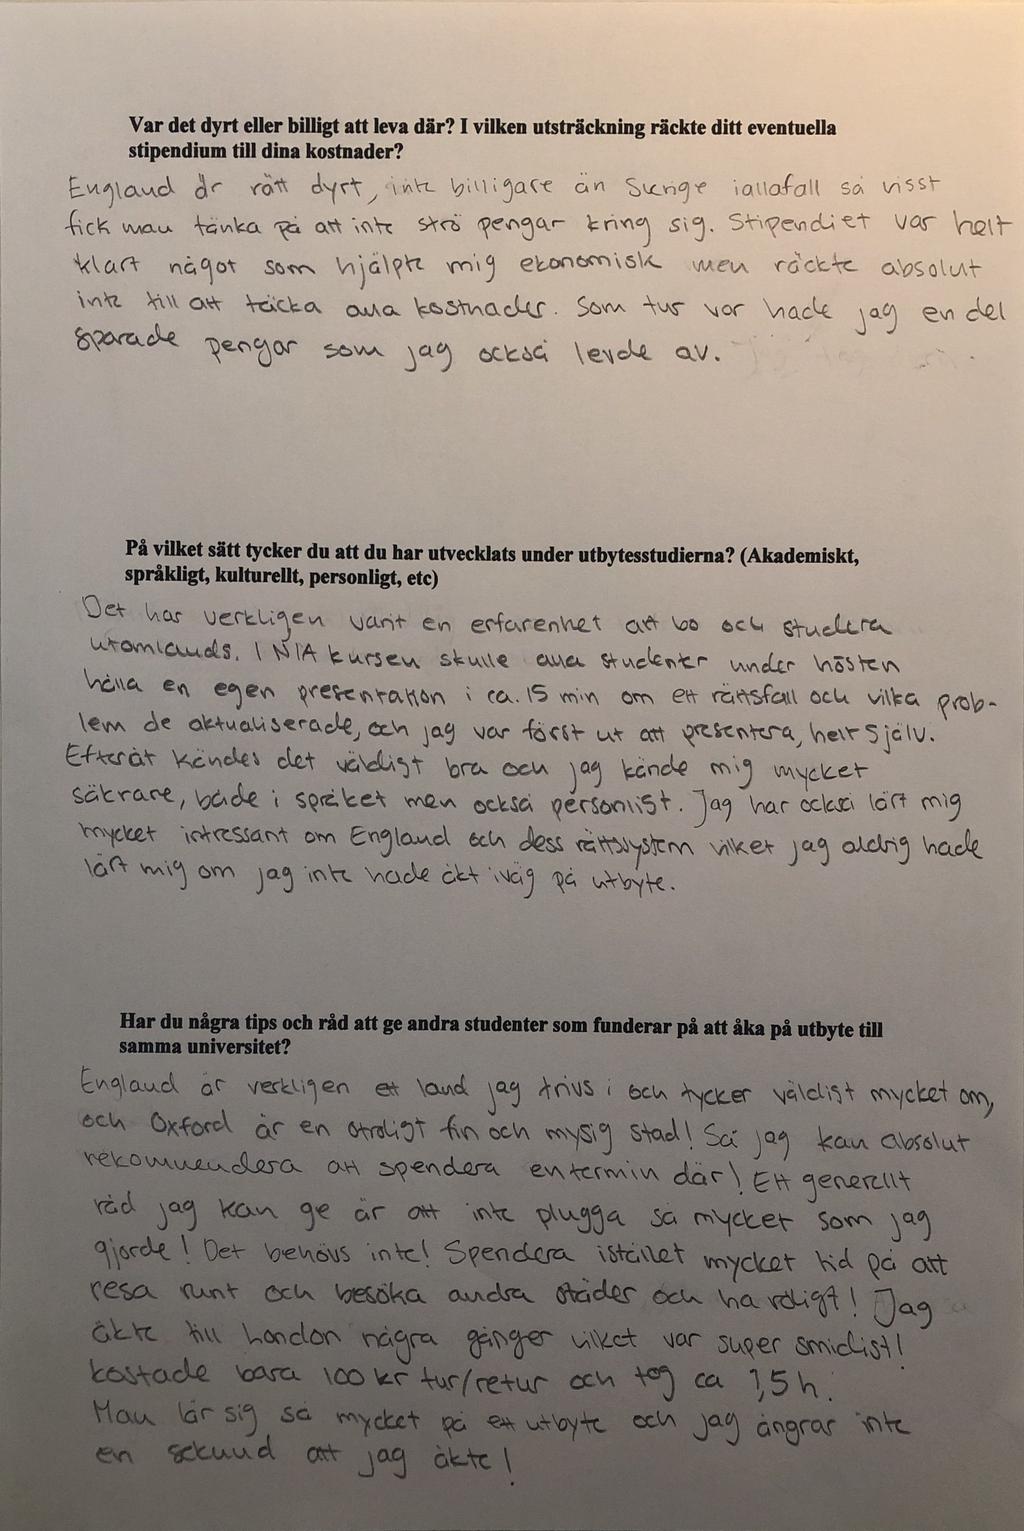 Var det dyrt eller billigt att leva där? I vilken utsträckning räckte ditt eventuella
stipendium till dina kostnader?
England är rätt dyrt, inte billigare än Sverige iallafall så visst
fick man tänka på att inte strö pengar kring sig. Stipendiet var helt
klart något som hjälpte mig ekonomisk men räckte absolut
inte till att täcka alla kostnader. Som tur var hade jag en del
sparade pengar som jag också levde av.
På vilket sätt tycker du att du har utvecklats under utbytesstudierna? (Akademiskt,
språkligt, kulturellt, personligt, etc)
Det har verkligen varit en erfarenhet att bo och studera
utomlands. I NIA kursen skulle alla studenter under hösten
hålla en egen presentation i ca. 15 min om ett rättsfall och vilka prob-
lem de aktualiserade, och jag var först ut att presentera, helt själv.
Efteråt kändes det väldigt bra och jag kände mig mycket
säkrare, både i språket men också personligt. Jag har också lärt mig
mycket intressant om England och dess rättssystem vilket jag aldrig hade
lärt mig om jag inte hade åkt iväg på utbyte.
Har du några tips och råd att ge andra studenter som funderar på att åka på utbyte till
samma universitet?
England är verkligen ett land jag trivs i och tycker väldigt mycket om,
och Oxford är en otroligt fin och mysig stad! Så jag kan absolut
rekommendera att spendera en termin där! Ett generellt
råd jag kan ge är att inte plugga så mycket som jag
gjorde! Det behövs inte! Spendera istället mycket tid på att
resa runt och besöka andra städer och ha roligt! Jag
åkte till London några gånger vilket var super smidigt!
Kostade bara 100 kr tur/retur och tog ca 1,5 h.
Man lär sig så mycket på ett utbyte och jag ångrar inte
en sekund att jag åkte!